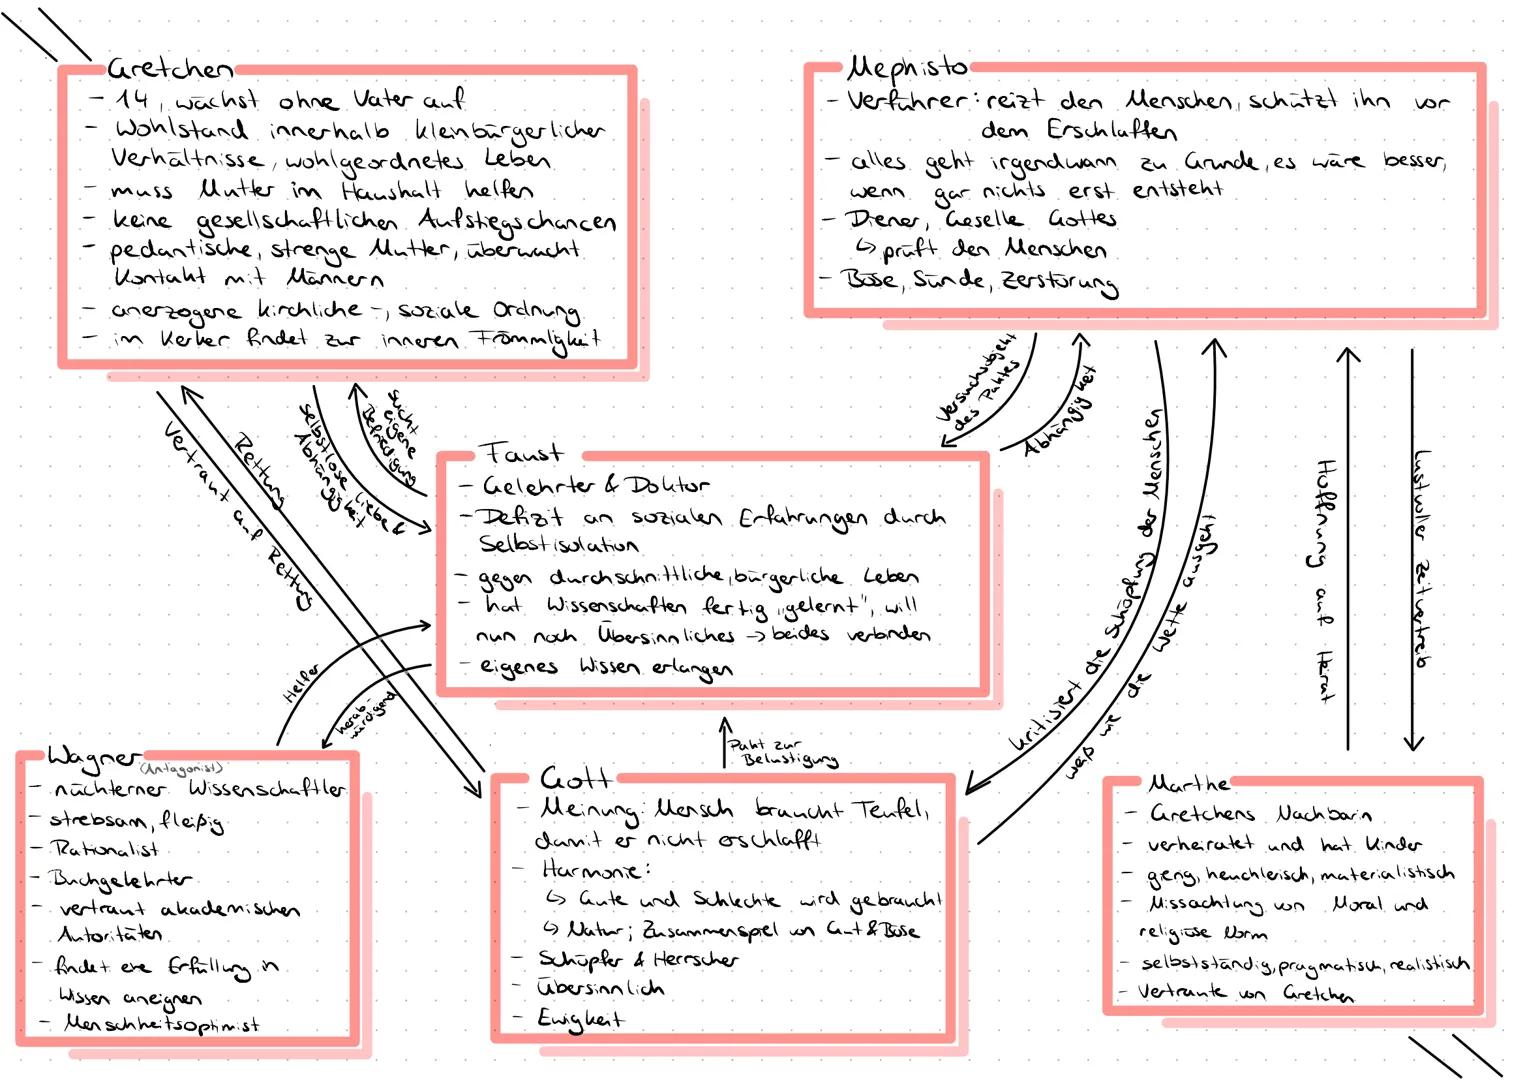 Gretchen
- 14, wächst ohne Vater auf
- Wohlstand innerhalb kleinbürgerlicher
Verhältnisse, wohlgeordnetes Leben
- muss Mutter im Haushalt helfen
- keine gesellschaftlichen Aufstiegschancen
- pedantische, strenge Mutter, überwacht
Kontakt mit Männern
- anerzogene kirchliche -, soziale Ordnung
- im Kerker findet zur inneren Frömmigkeit
Mephisto
- Verführer: reizt den Menschen, schützt ihn vor
dem Erschlaffen
- alles geht irgendwann zu Grunde, es wäre besser,
wenn gar nichts erst entsteht
- Diener, Geselle Gottes
↳ prüft den Menschen
- Böse, Sünde, Zerstörung
Vertraut auf Rettung
Rettung
selbstlose Liebe &
Abhängigkeit
sucht
eigene
Befriedigung
Versuchsobjekt
des Paktes
Abhängigkeit
kritisiert die Schöpfung der Menschen
weiß wie die Wette ausgeht
Hoffnung auf Heirat
Lustvoller Zeitvertreib
Faust
- Gelehrter & Doktor
- Defizit an sozialen Erfahrungen durch
Selbstisolation
- gegen durchschnittliche, bürgerliche Leben
- hat Wissenschaften fertig „gelernt", will
nun noch Übersinnliches → beides verbinden
- eigenes Wissen erlangen
Helfer
herab-
würdigend
Pakt zur
Belustigung
Wagner
(Antagonist)
- nüchterner Wissenschaftler
- strebsam, fleißig
- Rationalist
- Buchgelehrter
- vertraut akademischen
Autoritäten
- findet eine Erfüllung in
Wissen aneignen
- Menschheitsoptimist
Gott
- Meinung: Mensch braucht Teufel,
damit er nicht erschlafft
- Harmonie:
↳ Gute und Schlechte wird gebraucht
↳ Natur; Zusammenspiel von Gut & Böse
- Schöpfer & Herrscher
- übersinnlich
- Ewigkeit
Marthe
- Gretchens Nachbarin
- verheiratet und hat Kinder
- gierig, heuchlerisch, materialistisch
- Missachtung von Moral und
religiöse Norm
- selbstständig, pragmatisch, realistisch
- Vertraute von Gretchen